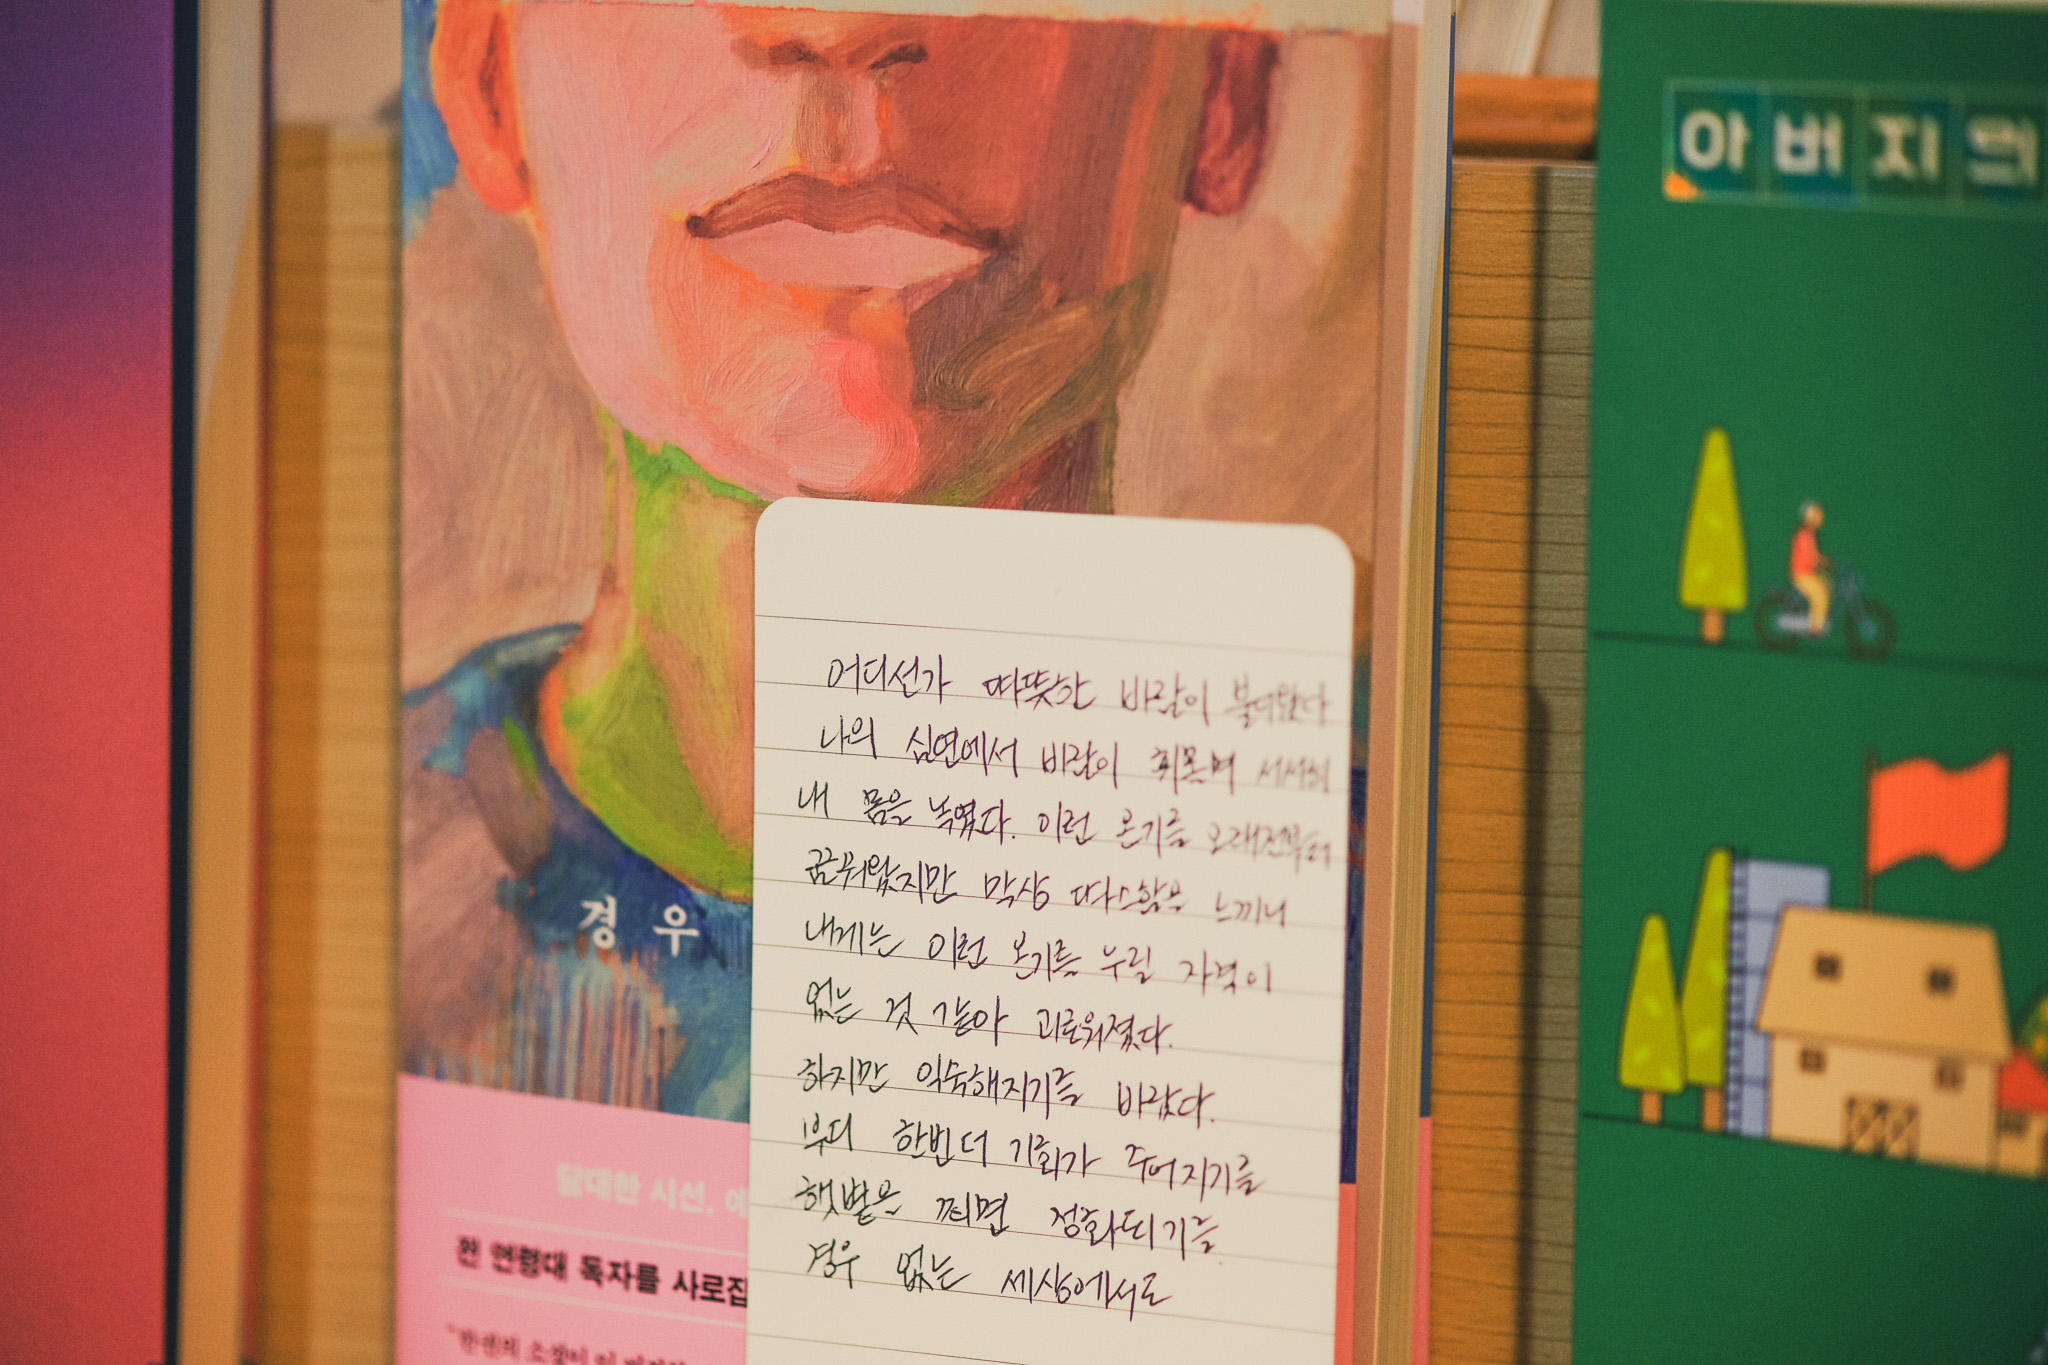 어디선가 따뜻한 바람이 불어왔다
나의 심연에서 바람이 휘몰며 서서히
내 몸을 녹였다. 이런 온기를 오래전부터
꿈꿔왔지만 막상 따스함을 느끼니
내게는 이런 온기를 누릴 자격이
없는 것 같아 괴로워졌다.
하지만 익숙해지기를 바랐다.
부디 한번 더 기회가 주어지기를
햇볕을 쬐면 정화되기를
경우 없는 세상에서도
경우
담대한 시선,
전 연령대 독자를 사로잡
아버지의